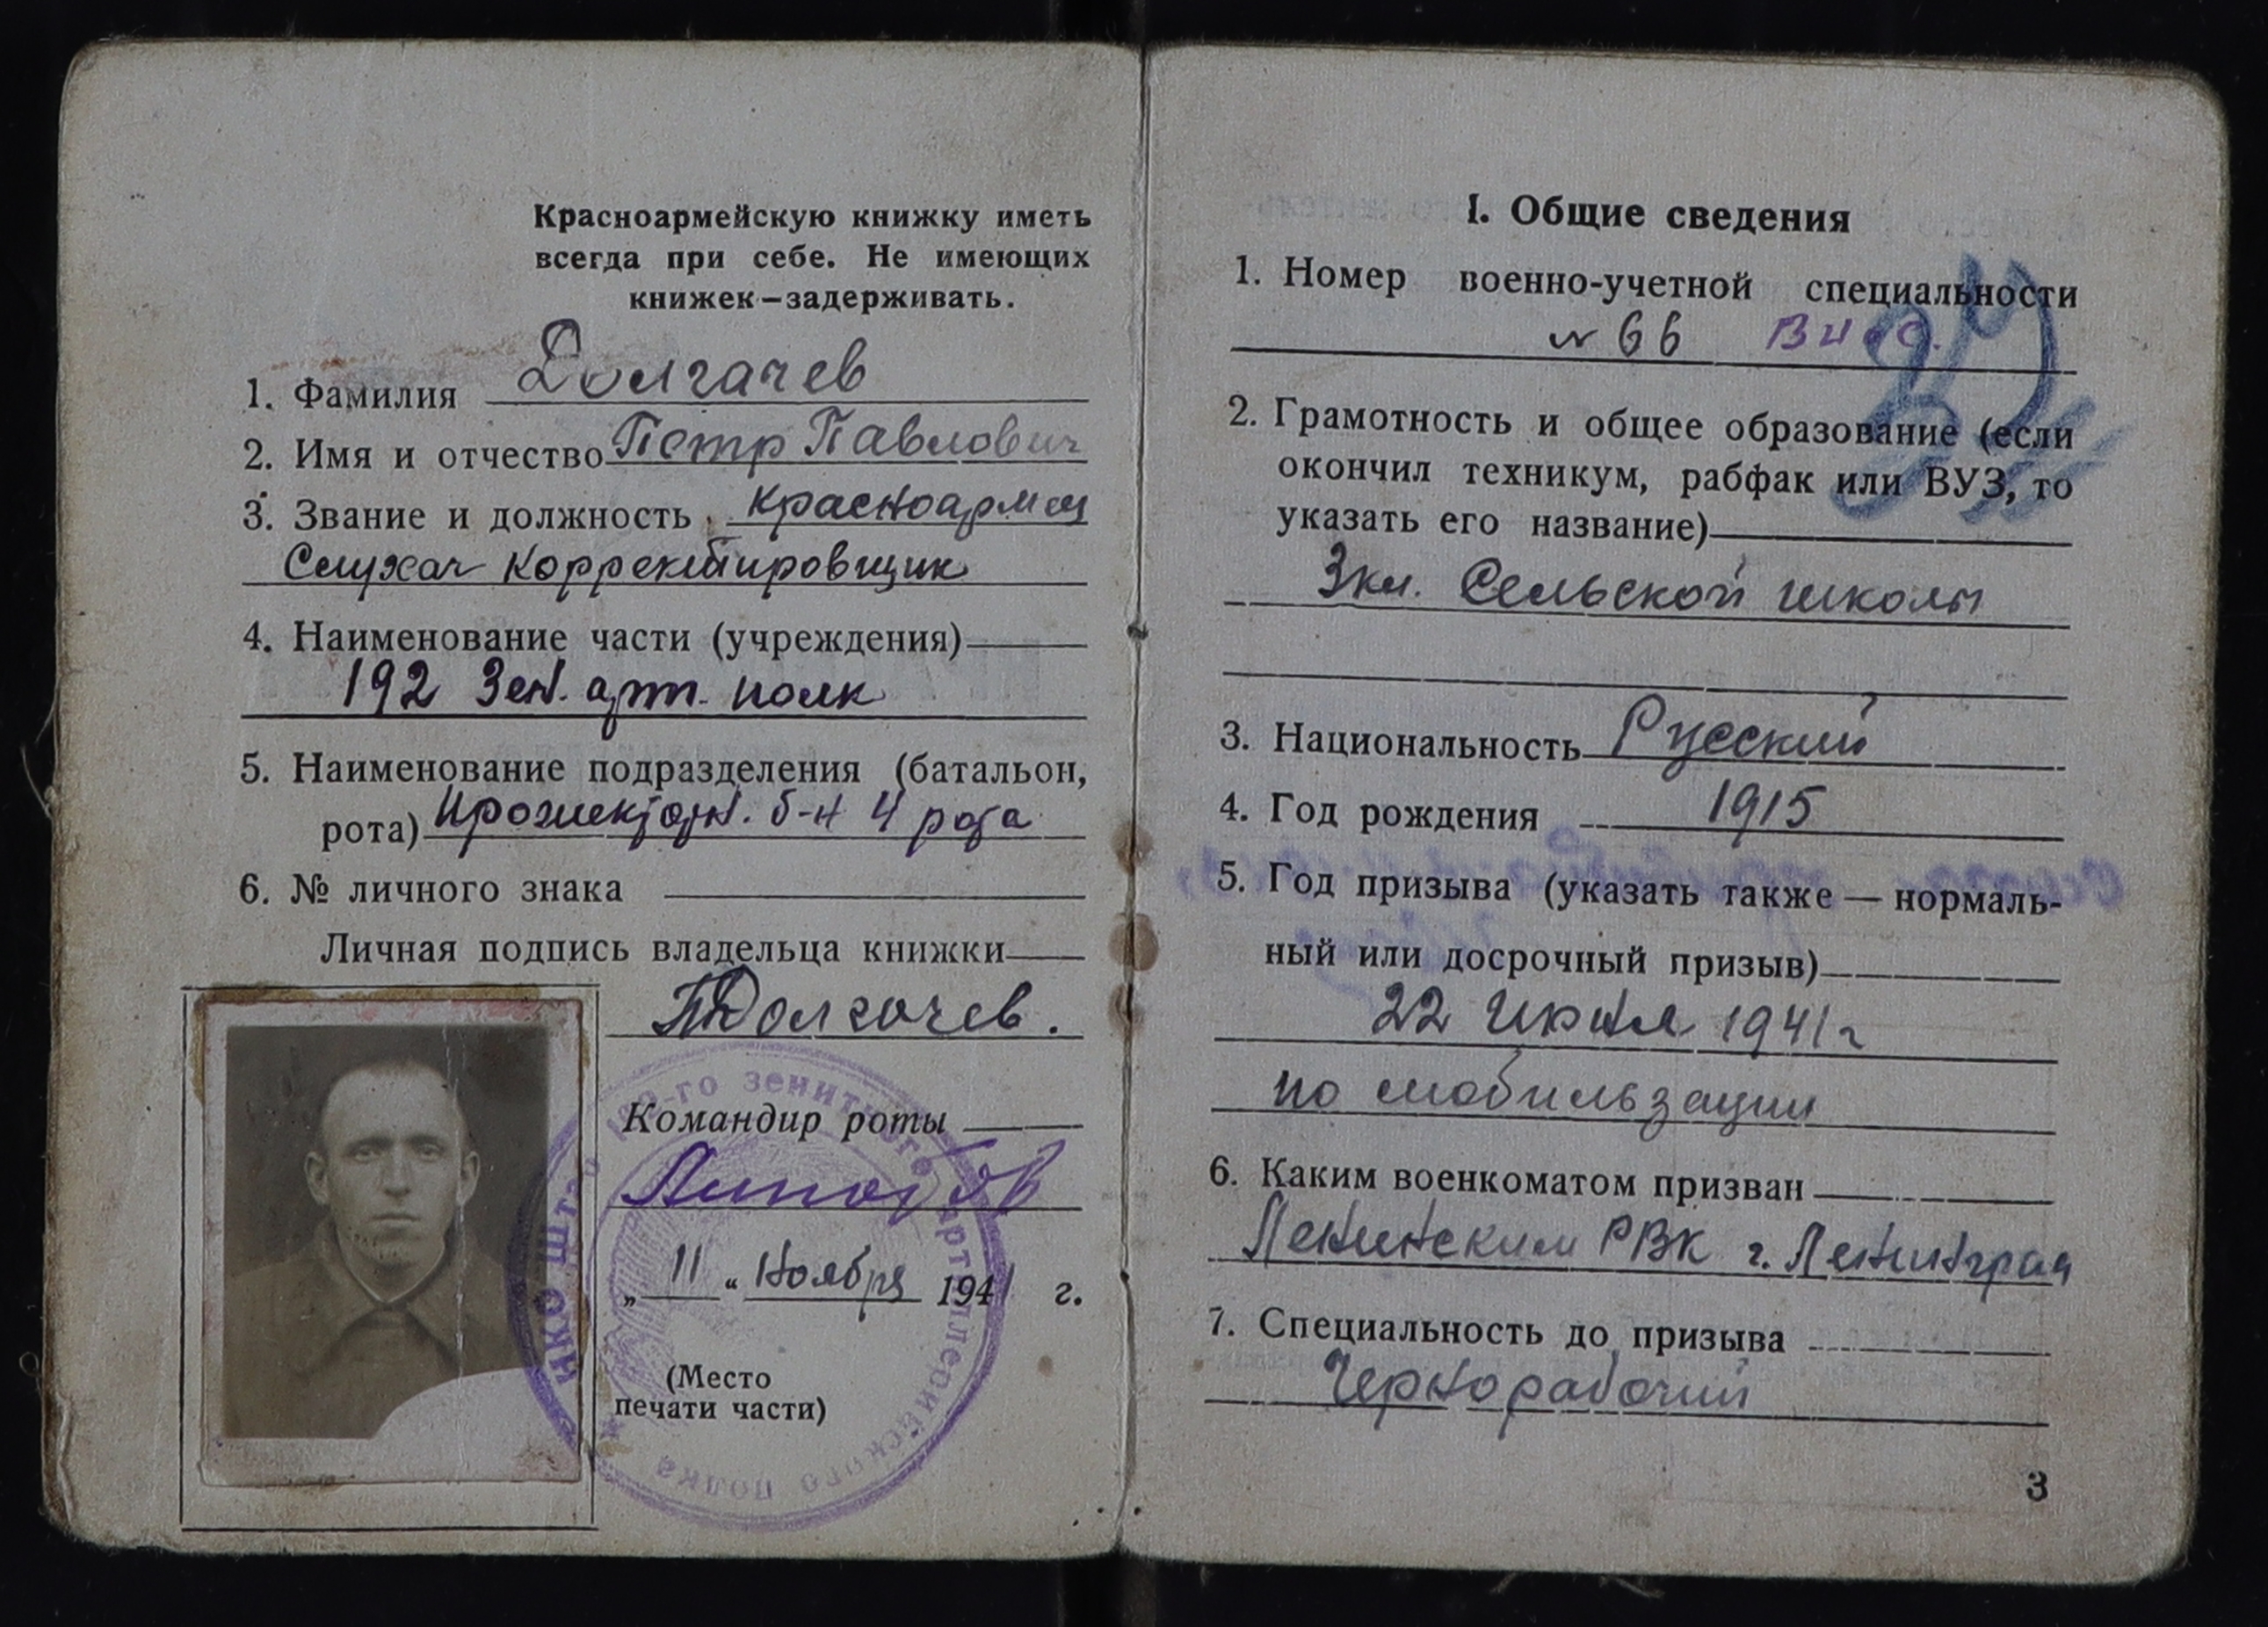 Красноармейскую книжку иметь
всегда при себе. Не имеющих
книжек—задерживать.
1. Фамилия Долгачев
2. Имя и отчество Петр Павлович
3. Звание и должность красноармец
Слухач Корректировщик
4. Наименование части (учреждения)
192 Зен. арт. полк
5. Наименование подразделения (батальон,
рота) Прожекторн. б-н 4 рота
6. № личного знака
Личная подпись владельца книжки
ПДолгачев.
Командир роты
„ 11 “ Ноября 1941 г.
(Место
печати части)
НКО Штаб 192-го зенитного артиллерийского полка
I. Общие сведения
1. Номер военно-учетной специальности
№ 66
2. Грамотность и общее образование (если
окончил техникум, рабфак или ВУЗ, то
указать его название)
3 кл. Сельской школы
3. Национальность Русский
4. Год рождения 1915
5. Год призыва (указать также — нормаль-
ный или досрочный призыв)
22 Июня 1941 г
по мобильзации
6. Каким военкоматом призван
Ленинским РВК г. Ленинград
7. Специальность до призыва
Чернорабочий
3